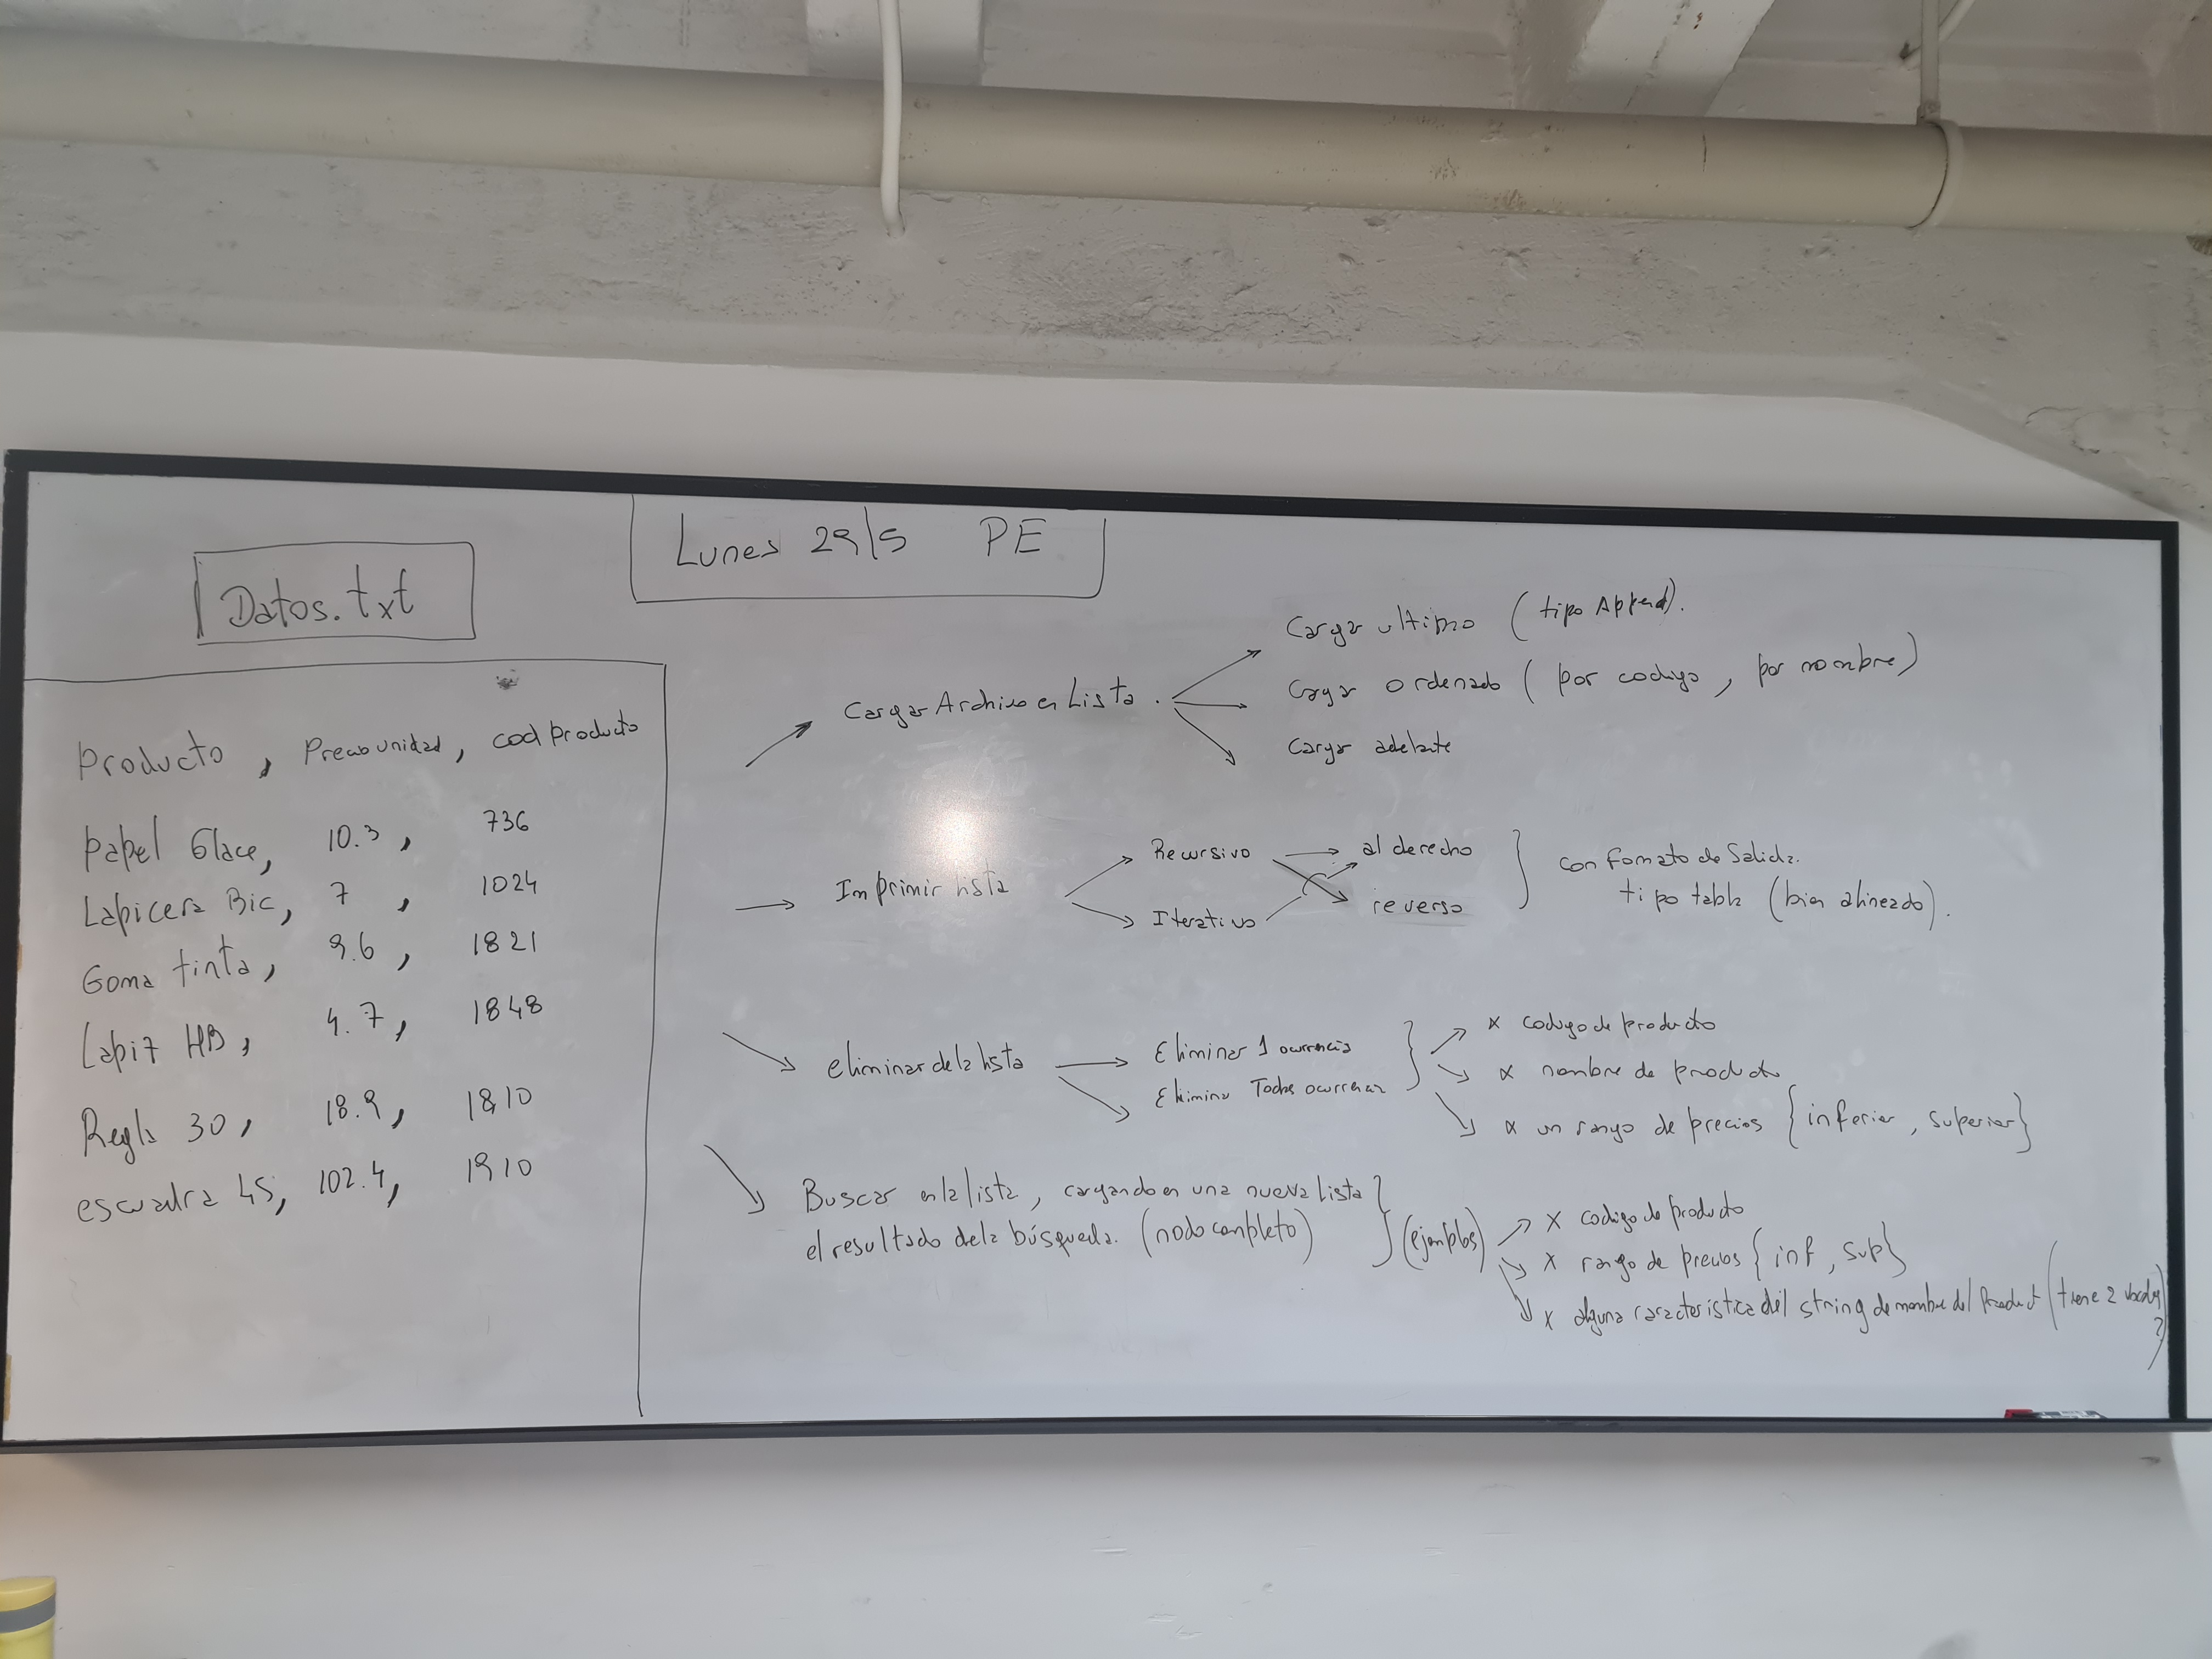 Lunes 29/5 PE
Datos.txt
Producto, Precio unidad, cod producto
Papel Glace, 10.3, 736
Lapicera Bic, 7, 1024
Goma tinta, 9.6, 1821
Lapiz HB, 4.7, 1848
Regla 30, 18.9, 1810
escuadra 45, 102.4, 1910
→ Cargar Archivo en Lista.
→ Cargar ultimo (tipo Append).
→ Cargar ordenado (por codigo, por nombre)
→ Cargar adelante
→ Imprimir lista
→ Recursivo → al derecho
→ Iterativo → reverso
} con fomato de Salida.
tipo tabla (bien alineado).
→ eliminar de la lista
→ Eliminar 1 ocurrencia
→ Elimina Todas
→ x codigo de producto
→ x nombre de producto
→ x un rango de precios {inferior, superior}
→ Buscar en la lista, cargando en una nueva lista
el resultado de la búsqueda. (nodo completo)
} (ejemplos)
→ x codigo de producto
→ x rango de precios {inf, sup}
→ x alguna caracteristica del string de nombre del Product (tiene 2
?)